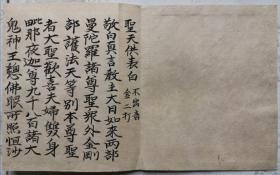 聖天供表白 不出音 金二打
敬白真言教主大日如来両部
曼陀羅諸尊聖衆外金剛
部護法天等別本尊聖
者大聖歓喜夫婦雙身
毗那夜迦尊九千八百諸大
鬼神王惣佛眼所照恒沙